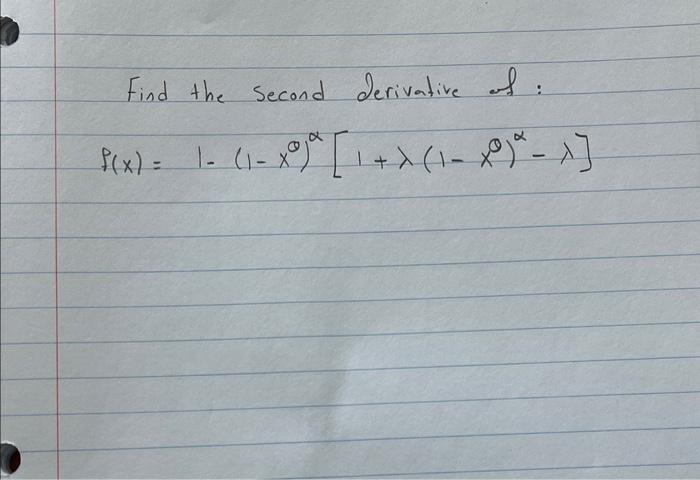 Find the second derivative of :
f(x) = 1 - (1 - x^θ)^α [1 + λ (1 - x^θ)^α - λ]